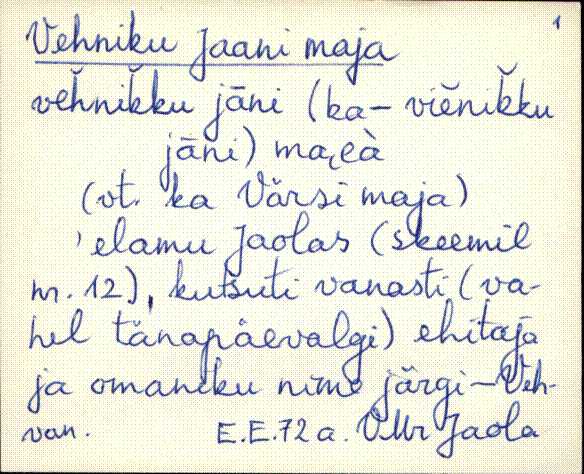 1
Vehniku Jaani maja
vehnikku jāni (ka – vienikku
jāni) ma͔eà
(vt. ka Värsi maja)
'elamu Jaolas (skeemil
nr. 12), kutsuti vanasti (va-
hel tänapäevalgi) ehitaja
ja omaniku nime järgi – Veh-
van. E.E. 72 a. VMr Jaola